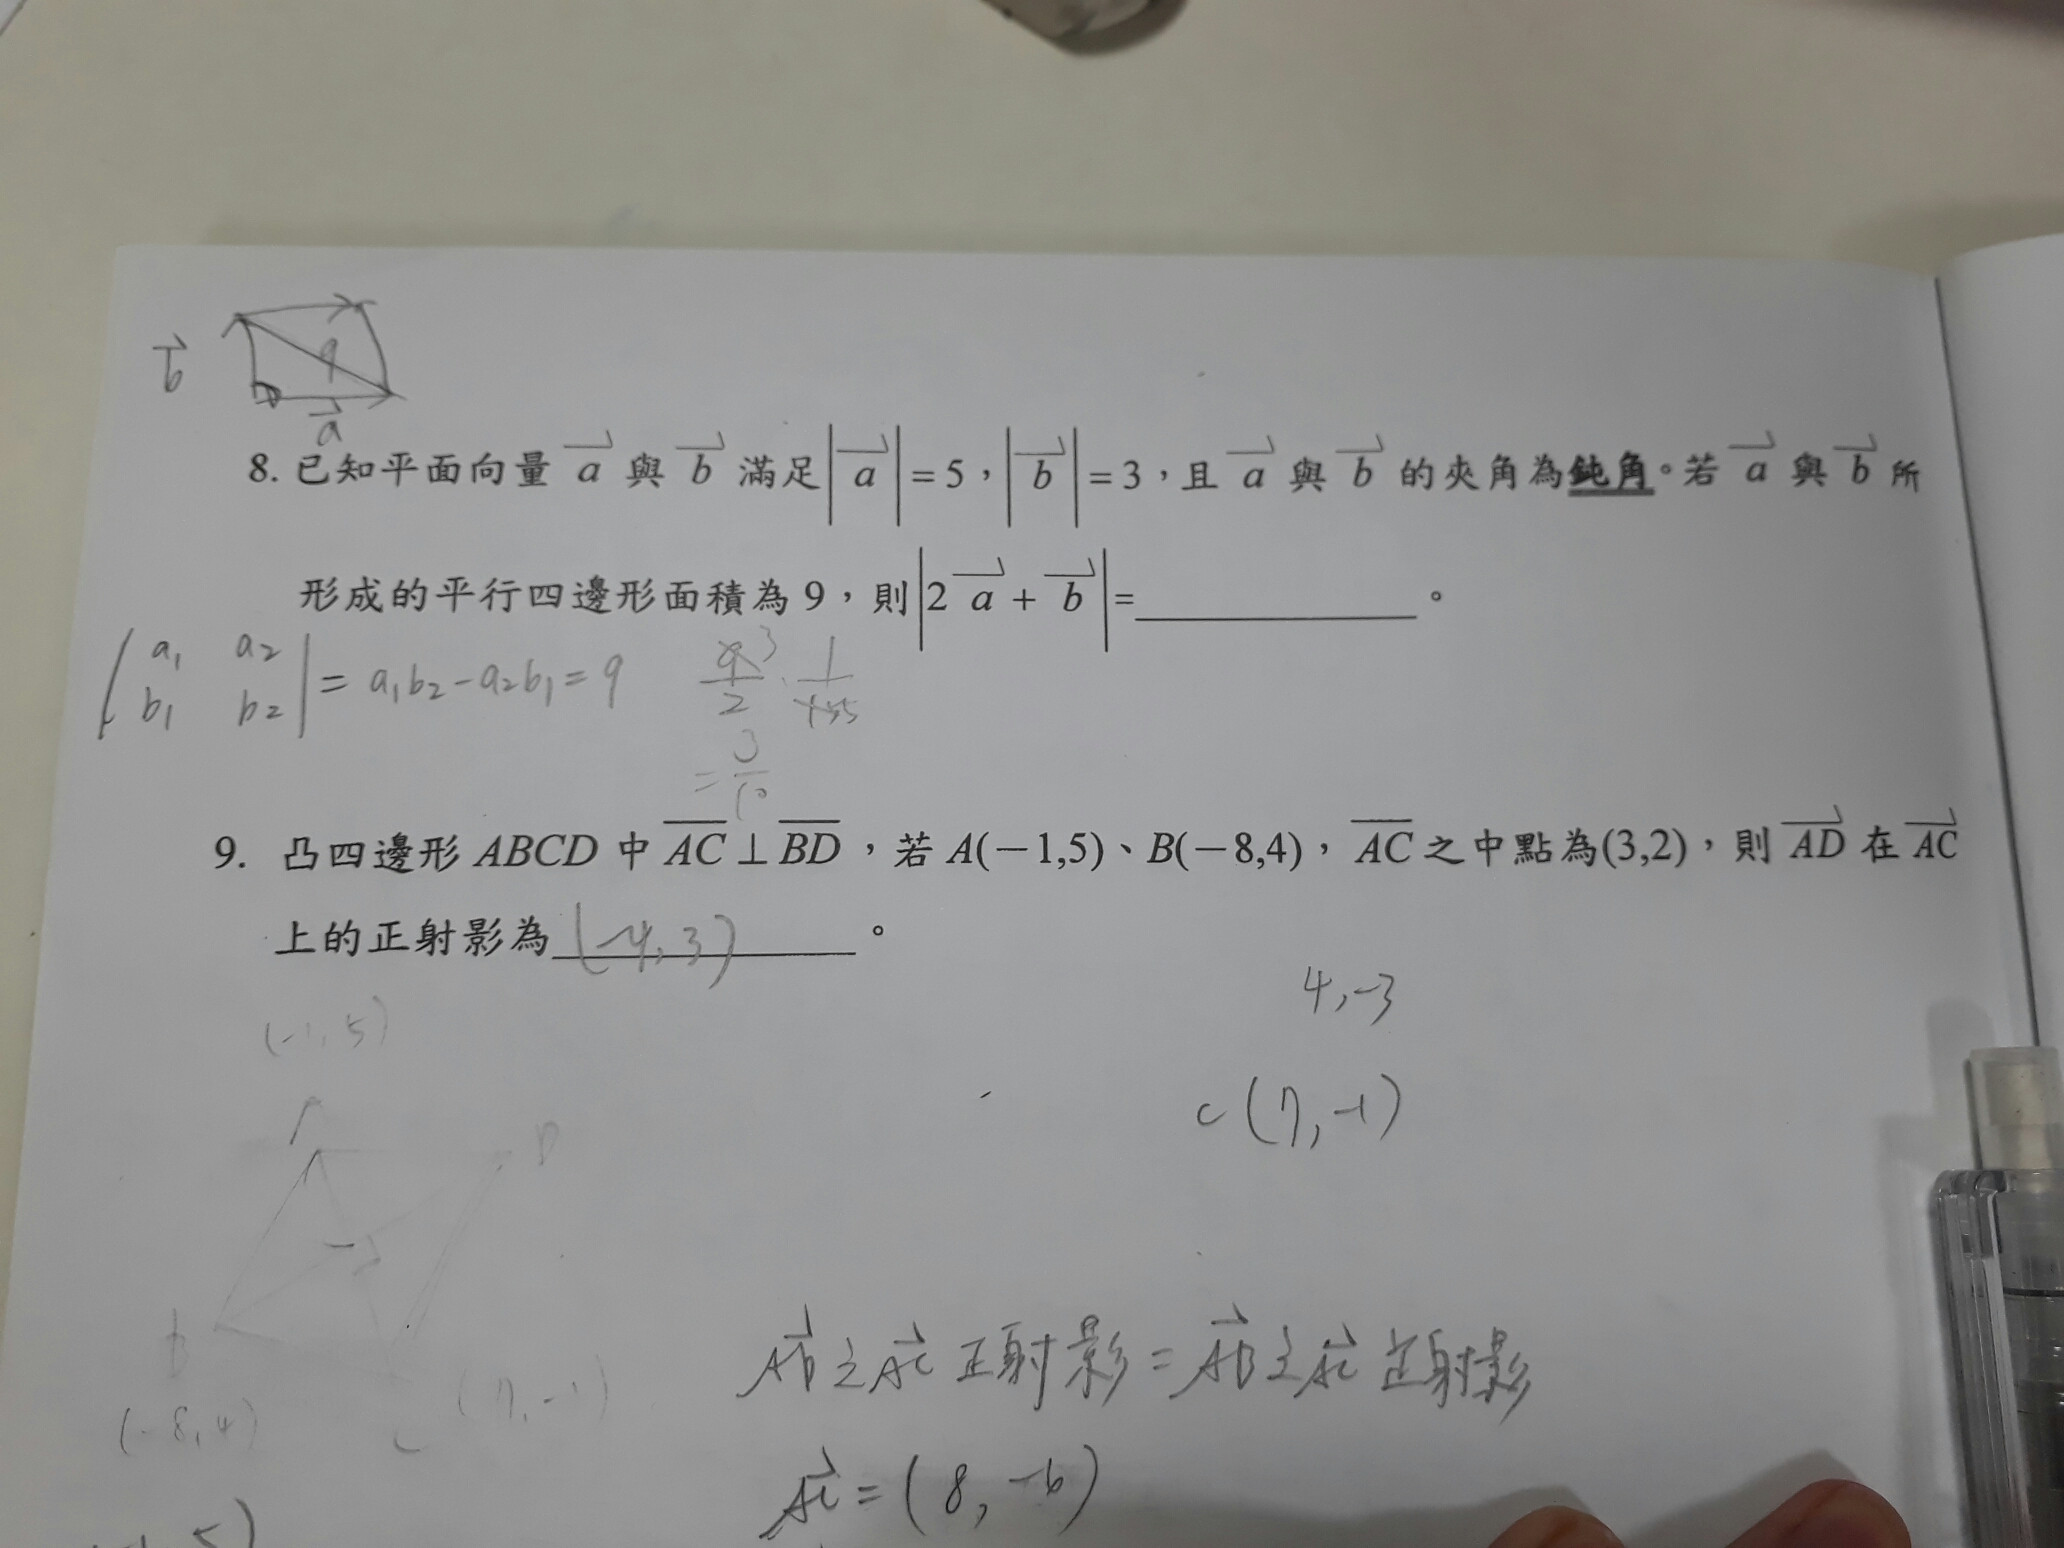 b
9
a
8. 已知平面向量 a 與 b 滿足 |a| = 5，|b| = 3，且 a 與 b 的夾角為鈍角。若 a 與 b 所
形成的平行四邊形面積為 9，則 |2a + b| = ________。
| a₁ a₂ |
| b₁ b₂ | = a₁b₂ - a₂b₁ = 9
= 3/10
9. 凸四邊形 ABCD 中 AC ⊥ BD，若 A(－1,5)、B(－8,4)，AC 之中點為(3,2)，則 AD 在 AC
上的正射影為 (-4, 3) 。
4, -3
(-1, 5)
C (7, -1)
A
D
B
(-8, 4)
C
(7, -1)
之 AC 正射影 = 之 AC 正射影
AC = (8, -6)
5)